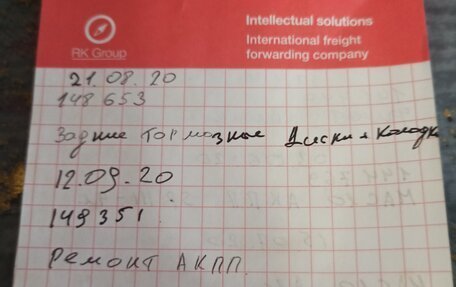 RK Group
Intellectual solutions
International freight
forwarding company
21.08.20
148 653
Задние тормозные Диски и колодки
12.09.20
149351
Ремонт АКПП